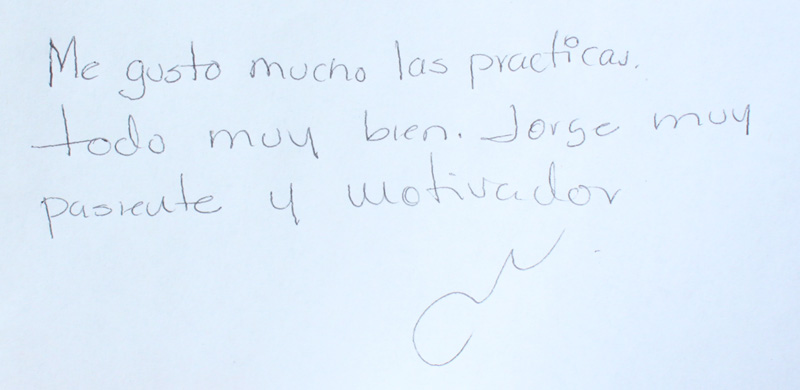 Me gusto mucho las practicas.
todo muy bien. Jorge muy
pasiente y motivador